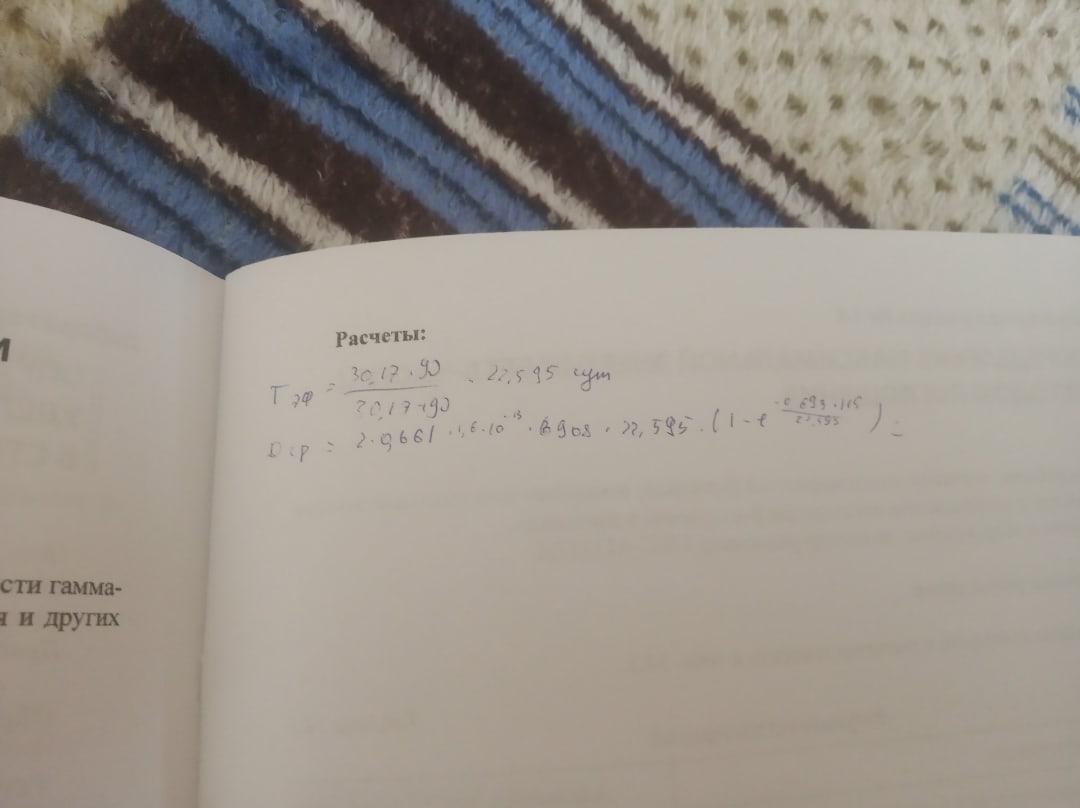 и
сти гамма-
я и других
Расчеты:
Tэф = 30,17·90 / 30,17+90 = 22,595 сут
Dср = 2·0,661·1,6·10⁻¹³·6908·22,595·(1-e^(-0,693·115 / 22,595)) =